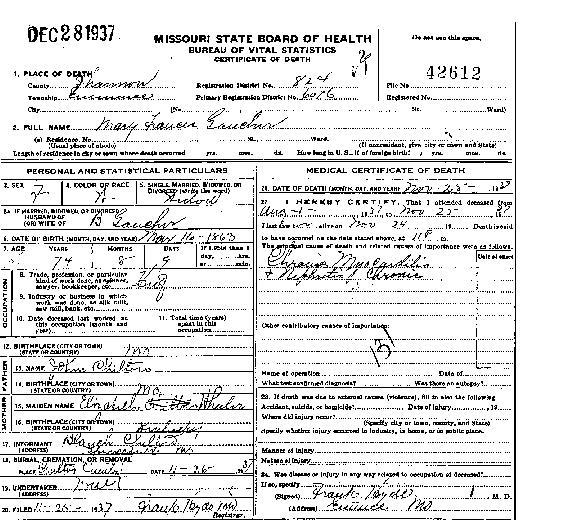 DEC 28 1937
MISSOURI STATE BOARD OF HEALTH
BUREAU OF VITAL STATISTICS
CERTIFICATE OF DEATH
Do not use this space.
1. PLACE OF DEATH
County Shannon Registration District No. 824 File No. 42612
Township Eminence Primary Registration District No. 6046 Registered No.
City (No. St. Ward)
2. FULL NAME Mary Frances
(a) Residence. No. St. Ward.
(Usual place of abode) (If nonresident, give city or town and State)
Length of residence in city or town where death occurred yrs. mos. ds. How long in U. S., if of foreign birth? yrs. mos. ds.
PERSONAL AND STATISTICAL PARTICULARS
3. SEX 4. COLOR OR RACE 5. SINGLE, MARRIED, WIDOWED, OR
DIVORCED (write the word)
Widow
5A. IF MARRIED, WIDOWED, OR DIVORCED
HUSBAND OF
(OR) WIFE OF B
6. DATE OF BIRTH (MONTH, DAY, AND YEAR) Mar 16 - 1863
7. AGE YEARS MONTHS DAYS If LESS than 1
day, hrs.
or min.
74 8 9
OCCUPATION
8. Trade, profession, or particular
kind of work done, as spinner,
sawyer, bookkeeper, etc.
9. Industry or business in which
work was done, as silk mill,
saw mill, bank, etc.
10. Date deceased last worked at
this occupation (month and
year)
11. Total time (years)
spent in this
occupation
12. BIRTHPLACE (CITY OR TOWN)
(STATE OR COUNTRY) Mo
FATHER
13. NAME John Chilton
14. BIRTHPLACE (CITY OR TOWN)
(STATE OR COUNTRY) Mo
MOTHER
15. MAIDEN NAME Elizabeth Wheeler
16. BIRTHPLACE (CITY OR TOWN)
(STATE OR COUNTRY)
17. INFORMANT Chilton
(ADDRESS) Mo
18. BURIAL, CREMATION, OR REMOVAL
PLACE DATE 11-26 1937
19. UNDERTAKER
(ADDRESS)
20. FILED 11-26-1937 Frank Hyde MD
Registrar.
MEDICAL CERTIFICATE OF DEATH
21. DATE OF DEATH (MONTH, DAY, AND YEAR) Nov-25- 1937
22. I HEREBY CERTIFY, That I attended deceased from
1937, to Nov 25 1937
I last saw alive on Nov 24 Death is said
to have occurred on the date stated above, at
The principal cause of death and related causes of importance were as follows:
Date of onset
Chronic Myocarditis
+ Nephritis Chronic
131
Other contributory causes of importance:
Name of operation Date of
What test confirmed diagnosis? Was there an autopsy?
23. If death was due to external causes (violence), fill in also the following:
Accident, suicide, or homicide? Date of injury , 19
Where did injury occur?
(Specify city or town, county, and State)
Specify whether injury occurred in industry, in home, or in public place.
Manner of injury
Nature of injury
24. Was disease or injury in any way related to occupation of deceased?
If so, specify
(Signed) Frank Hyde M. D.
(Address) Eminence Mo